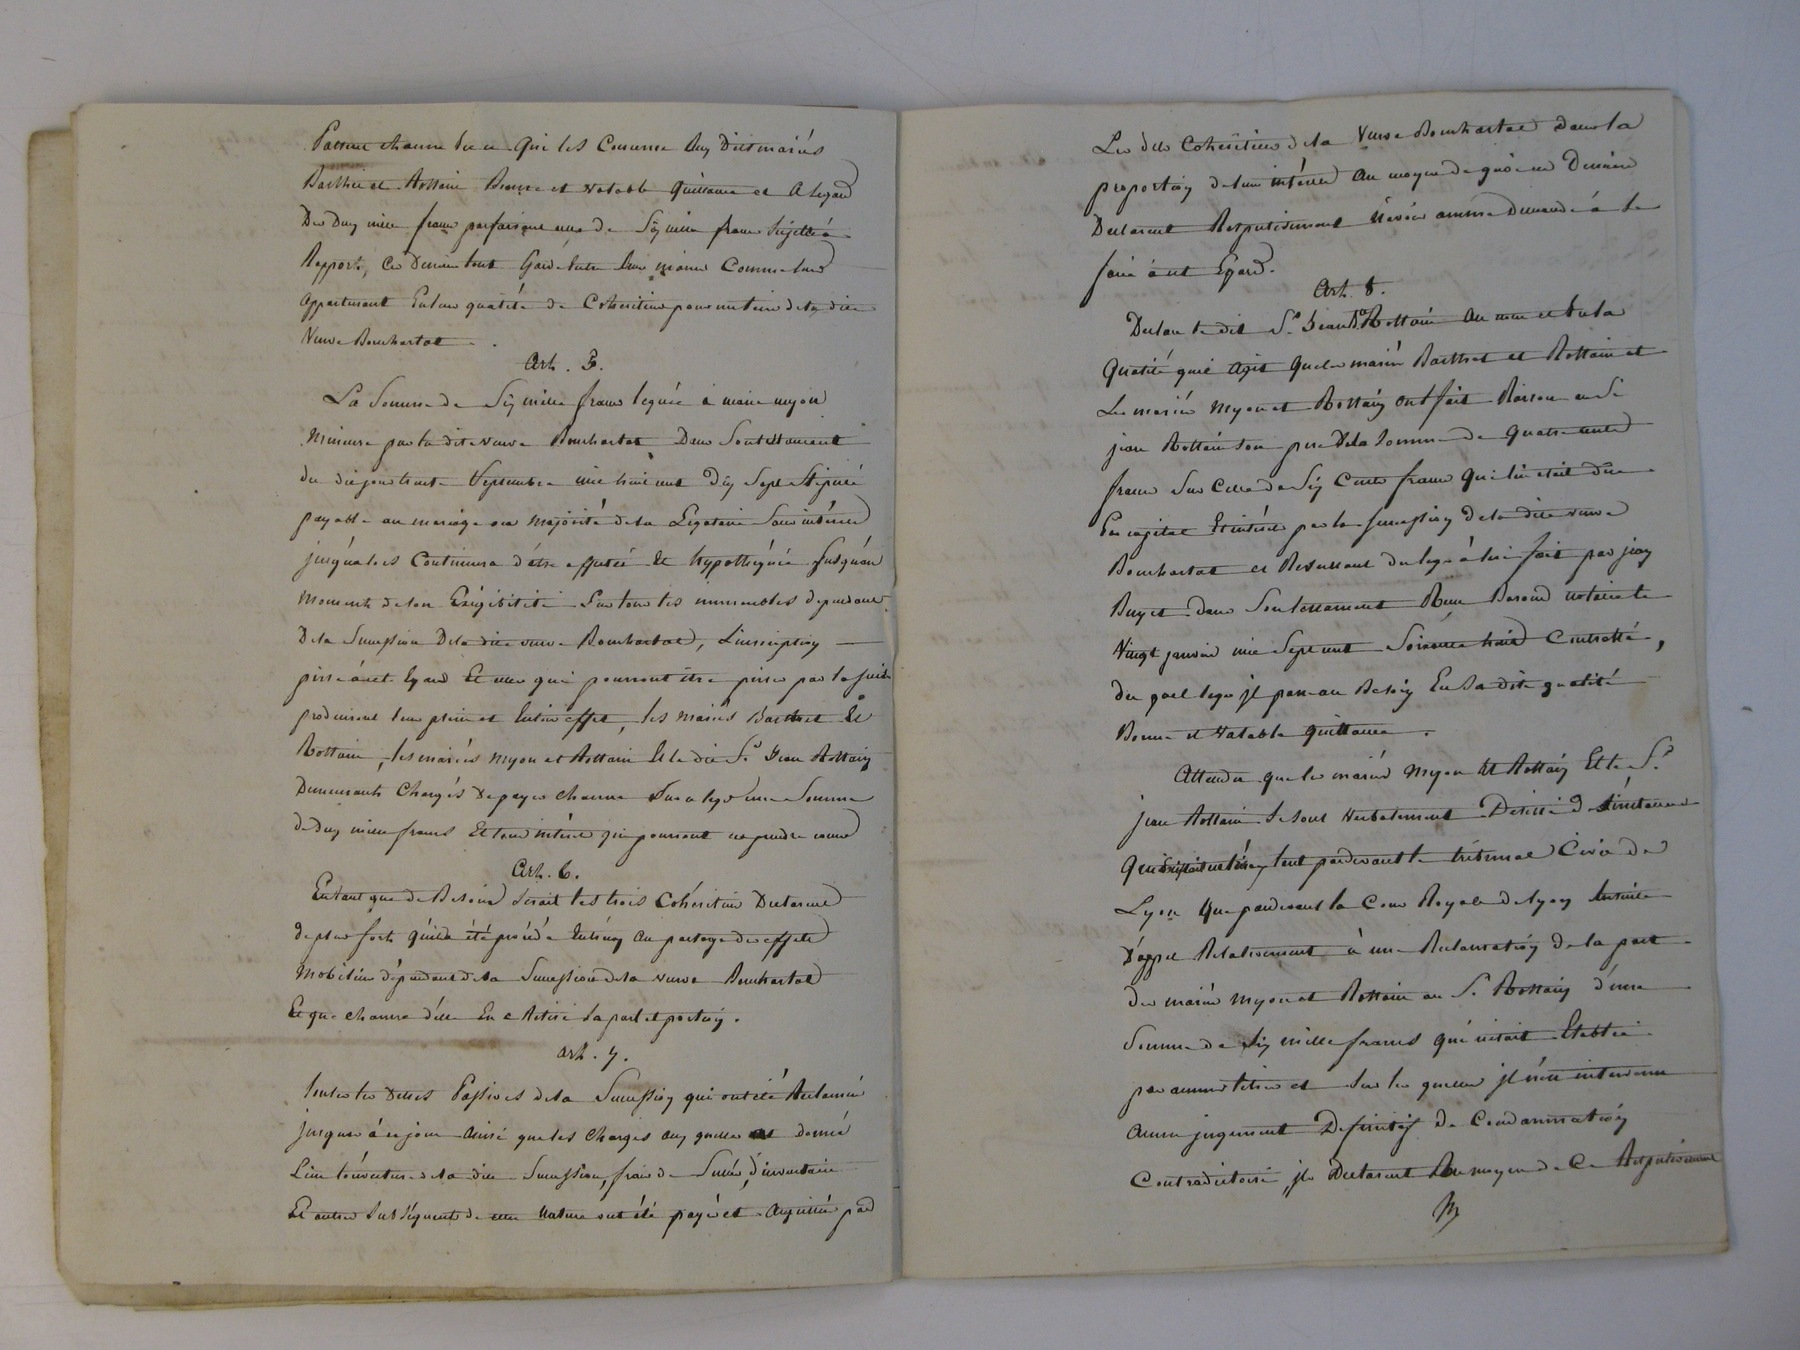 Passent chacun de ce qui les concerne aux dits mariés
Barthet et Rottain Bonne et valable quittance et a legard
Des dix mille francs parfaisant ceux de Six mille francs Sujets à
Rapport, ces Derniers Comme leur
appartenant En leur qualité de Cohéritiers pour un tiers de la dite
Veuve Bouchartat
Art. 5.
La Somme de Six mille francs leguée à marie myon
Mineure par la dite veuve Bouchartat Dans Son testament
du dit jour trente Septembre mil huit cent Dix Sept Stipulé
payable au mariage ou majorité de la Legataire Sans intérêts
jusqu'alors Continuera d'être affectée et hypothéquée Jusqu'au
moment de son Exigibilité Sur tous les immeubles dependants
De la Succession De la dite veuve Bouchartat, L'inscription
prise à cet Egard Et celles qui pourront être prises par la suite
produiront leur plein et Entier effet, les mariés Barthet Et
Rottain, les mariés myon et Rottain Et le dit Sr Jean Rottain
Demeurants Chargés De payer chacun Sur ce legs une Somme
de deux mille francs Et tous intérêts qui pourront en prendre cours
Art. 6.
En tant que de Besoin Serait les trois Cohéritiers Declarent
de plus fort qu'il a été procédé Entr'eux au partage des effets
Mobiliers dépendants de la Succession de la veuve Bouchartat
Et que chacun d'eux En a Retiré Sa part et portion.
art. 7.
toutes les Dettes Passives de la Succession qui ont été Reclamées
jusques à ce jour ainsi que les Charges aux quelles a Donné
Lieu l'ouverture de la dite Succession, frais de Scellé, d'inventaire
Et autres Subséquents de cette Nature ont été payés et acquittés par
Les dits Cohéritiers de la Veuve Bouchartat Dans la
proportion de leur intérêt au moyen de quoi ces Derniers
Declarent Respectivement n'avoir aucune Demande à Se
faire à cet Egard.
Art. 8.
Declare le dit Sr Jean Bte Rottain au nom et En la
Qualité qu'il agit que les mariés Barthet et Rottain et
Les mariés myon et Rottain ont fait Raison au Sr
jean Rottain Son pere De la Somme de Quatre cents
francs Sur Celle de Six Cents francs qui lui était due
En capital Et intérêts par la Succession de la dite veuve
Bouchartat et Resultant du legs à lui fait par jean
Buyet dans Son testament Reçu Barond notaire le
Vingt janvier mil Sept cent Soixante huit Controllé,
du quel legs jl passe au Besoin En Sa dite qualité
Bonne et Valable quittance.
Attendu que les mariés Myon Et Rottain Et le Sr
jean Rottain Se Sont verbalement Desisté De l'instance
Qui Existait entr'eux tant pardevant le tribunal Civil de
Lyon que pardevant la Cour Royale de Lyon Ensuite
D'appel Relativement à une Reclamation de la part
des mariés myon et Rottain au Sr Rottain d'une
Somme de Six mille francs qui n'était Etablie
par aucun titre et Sur la quelle jl n'est intervenu
aucun jugement Definitif de Condamnation
Contradictoire, jls Declarent Au moyen de Ce Respectivement